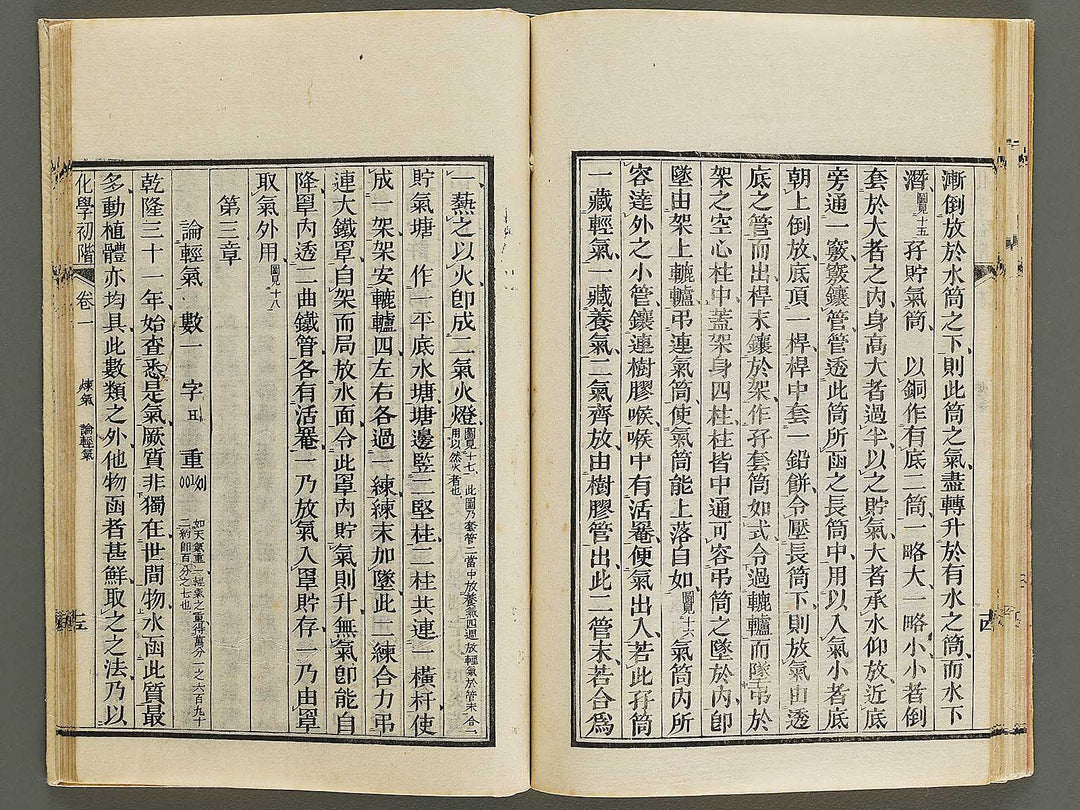 漸倒放於水筒之下則此筒之氣盡轉升於有水之筒而水下
潛圖見十五孖貯氣筒　以銅作有底二筒一略大一略小小者倒
套於大者之內身高大者過半以之貯氣大者承水仰放近底
旁通一竅竅鑲管管透此筒所函之長筒中用以入氣小者底
朝上倒放底頂一桿桿中套一鉛餅令壓長筒下則放氣由透
底之管而出桿末鑲於架作孖套筒如式令過轆轤而墜弔於
架之空心柱中蓋架身四柱柱皆中通可容弔筒之墜於內卽
墜由架上轆轤弔連氣筒使氣筒能上落自如圖見十六氣筒內所
容達外之小管鑲連樹膠喉喉中有活罨便氣出入若此孖筒
一藏輕氣一藏養氣二氣齊放由樹膠管出此二管末若合爲
一熱之以火卽成二氣火燈圖見十七此圖乃套管二當中放養氣四週放輕氣於管末合一用以然火者也
貯氣塘　作一平底水塘塘邊竪二堅柱二柱共連一橫杆使
成一架架安轆轤四左右各過一練練末加墜此二練合力弔
連大鐵罩自架而局放水面令此罩內貯氣則升無氣卽能自
降罩內透二曲鐵管各有活罨一乃放氣入罩貯存一乃由罩
取氣外用圖見十八
第三章
論輕氣　數一　字　重
如天氣重一輕氣之重得萬分一之六百九十二約卽百分之七也
乾隆三十一年始查悉是氣厥質非獨在世間物水函此質最
多動植體亦均具此數類之外他物函者甚鮮取之之法乃以
化學初階　卷一　煉氣　論輕氣